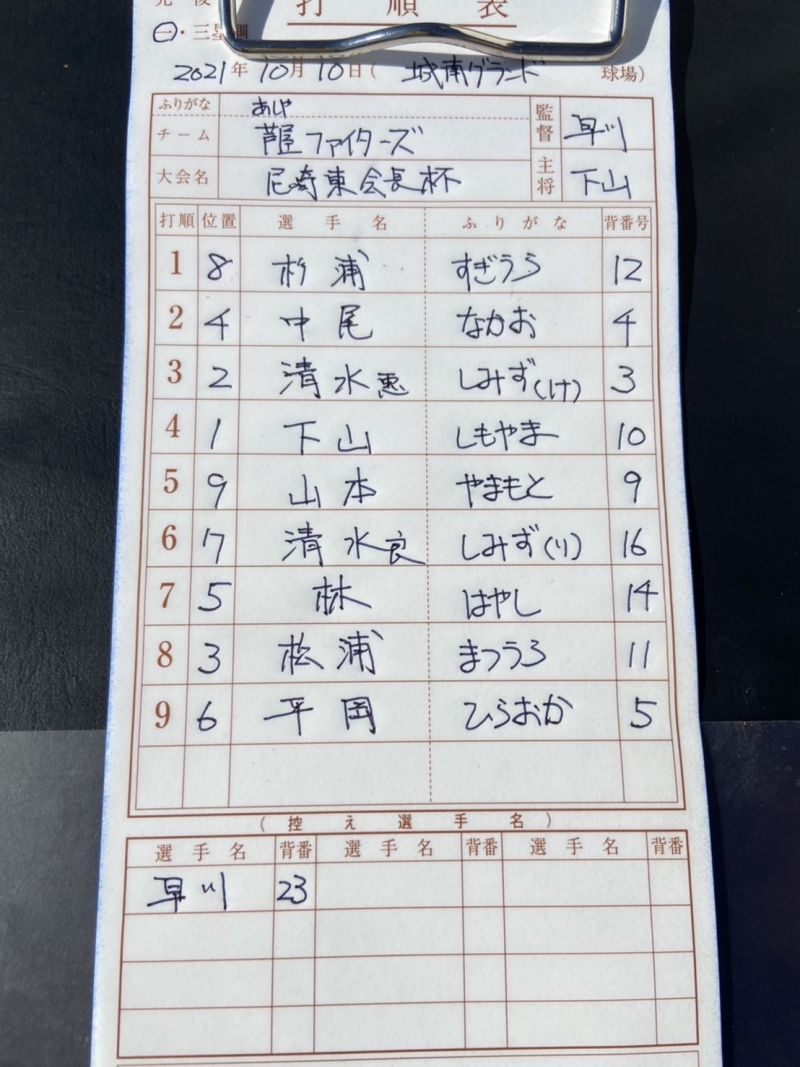 先 後
一・三塁側
打順表
2021年10月10日(城南グランド 球場)
ふりがな あしや
チーム 芦屋ファイターズ
監督 早川
大会名 尼崎東会長杯
主将 下山
打順 位置 選手名 ふりがな 背番号
1 8 杉浦 すぎうら 12
2 4 中尾 なかお 4
3 2 清水恵 しみず(け) 3
4 1 下山 しもやま 10
5 9 山本 やまもと 9
6 7 清水良 しみず(り) 16
7 5 林 はやし 14
8 3 松浦 まつうら 11
9 6 平岡 ひらおか 5
(控え選手名)
選手名 背番 選手名 背番 選手名 背番
早川 23